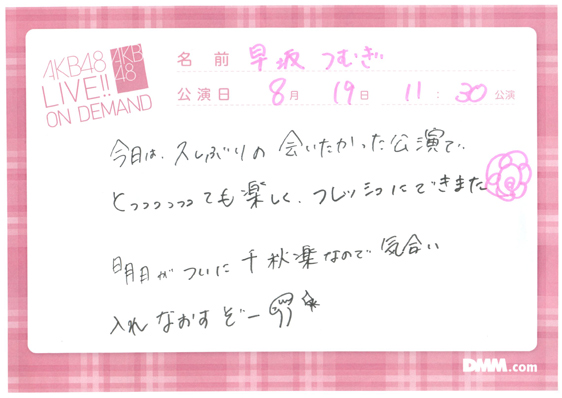 AKB48
LIVE!!
ON DEMAND
AKB
48
名前 早坂 つむぎ
公演日 8月 19日 11:30 公演
今日は、久しぶりの 会いたかった公演で、
とっっっっっても楽しく、フレッシュにできました
明日が ついに 千秋楽なので 気合い
入れ なおす ぞー
DMM.com